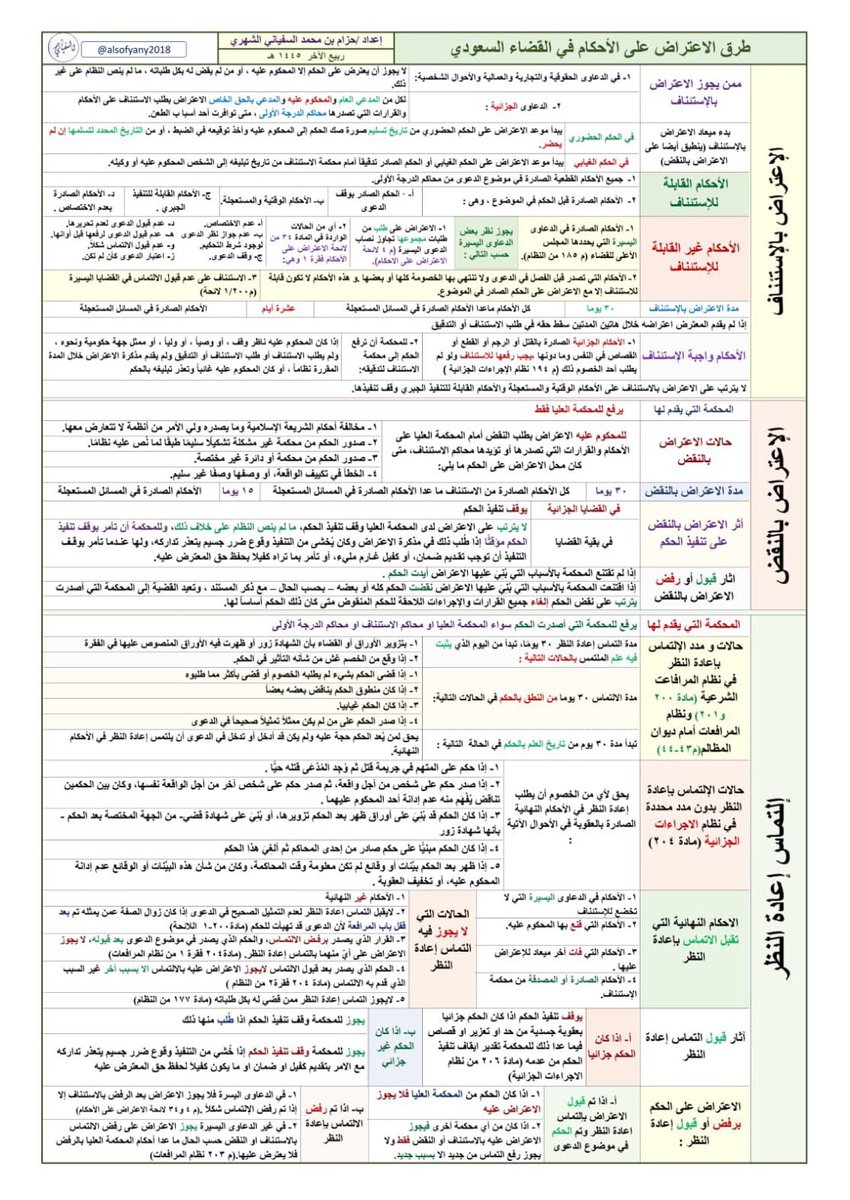 طرق الاعتراض على الأحكام في القضاء السعودي
إعداد /حزام بن محمد السفياني الشهري
ربيع الآخر ١٤٤٥ هـ
@alsofyany2018
الإعتراض بالإستئناف
ممن يجوز الاعتراض بالإستئناف
١- في الدعاوى الحقوقية والتجارية والعمالية والأحوال الشخصية:
لا يجوز أن يعترض على الحكم إلا المحكوم عليه ، أو من لم يقض له بكل طلباته ، ما لم ينص النظام على غير ذلك.
٢- الدعاوى الجزائية :
لكل من المدعي العام والمحكوم عليه والمدعي بالحق الخاص الاعتراض بطلب الاستئناف على الأحكام والقرارات التي تصدرها محاكم الدرجة الأولى ، متى توافرت أحد أسبا ب الطعن.
بدء ميعاد الاعتراض بالإستئناف (ينطبق أيضا على الاعتراض بالنقض)
في الحكم الحضوري
يبدأ موعد الاعتراض على الحكم الحضوري من تاريخ تسليم صورة صك الحكم إلى المحكوم عليه وأخذ توقيعه في الضبط ، أو من التاريخ المحدد لتسلمها إن لم يحضر.
في الحكم الغيابي
يبدأ موعد الاعتراض على الحكم الغيابي أو الحكم الصادر تدقيقاً أمام محكمة الاستئناف من تاريخ تبليغه إلى الشخص المحكوم عليه أو وكيله.
الأحكام القابلة للإستئناف
١- جميع الأحكام القطعية الصادرة في موضوع الدعوى من محاكم الدرجة الأولى.
٢- الأحكام الصادرة قبل الحكم في الموضوع ، وهى :
أ- الحكم الصادر بوقف الدعوى
ب- الأحكام الوقتية والمستعجلة.
ج- الأحكام القابلة للتنفيذ الجبري .
د- الأحكام الصادرة بعدم الاختصاص .
الأحكام غير القابلة للإستئناف
١- الأحكام الصادرة في الدعاوى اليسيرة التي يحددها المجلس الأعلى للقضاء (م ١٨٥ من النظام).
يجوز نظر بعض الدعاوى اليسيرة حسب التالي :
١- الاعتراض على طلب من طلبات مجموعها تجاوز نصاب الدعوى اليسيرة (م ٤ لائحة الاعتراض على الاحكام).
٢- أي من الحالات الواردة في المادة ٣٤ من لائحة الاعتراض على الأحكام فقرة ١ وهى:
أ- عدم اختصاص.
ب- عدم جواز نظر الدعوى لوجود شرط التحكيم.
ج- وقف الدعوى.
د- عدم قبول الدعوى لعدم تحريرها.
هـ- عدم قبول الدعوى لرفعها قبل أوانها.
و- عدم قبول الالتماس شكلاً.
ز- اعتبار الدعوى كأن لم تكن.
٢- الأحكام التي تصدر قبل الفصل في الدعوى ولا تنتهي بها الخصومة كلها أو بعضها ,و هذه الأحكام لا تكون قابلة للاستئناف إلا مع الاعتراض على الحكم الصادر في الموضوع.
٣- الاستئناف على عدم قبول الالتماس في القضايا اليسيرة (م١/٢٠٠ لائحة)
مدة الاعتراض بالإستئناف
٣٠ يوما
كل الأحكام ماعدا الأحكام الصادرة في المسائل المستعجلة
عشرة أيام
الأحكام الصادرة في المسائل المستعجلة
إذا لم يقدم المعترض اعتراضه خلال هاتين المدتين سقط حقه في طلب الاستئناف أو التدقيق
الأحكام واجبة الإستئناف
١- الأحكام الجزائية الصادرة بالقتل أو الرجم أو القطع أو القصاص في النفس وما دونها ،يجب رفعها للاستئناف ولو لم يطلب أحد الخصوم ذلك (م ١٩٤ نظام الإجراءات الجزائية )
٢- للمحكمة أن ترفع الحكم إلى محكمة الاستئناف لتدقيقه:
إذا كان المحكوم عليه ناظر وقف ، أو وصياً ، أو ولياً ، أو ممثل جهة حكومية ونحوه ، ولم يطلب الاستئناف أو طلب الاستئناف أو التدقيق ولم يقدم مذكرة الاعتراض خلال المدة المقررة نظاماً ، أو كان المحكوم عليه غائباً وتعذر تبليغه بالحكم
لا يترتب على الاعتراض بالاستئناف على الأحكام الوقتية والمستعجلة والأحكام القابلة للتنفيذ الجبري وقف تنفيذها.
الإعتراض بالنقض
المحكمة التي يقدم لها
يرفع للمحكمة العليا فقط
حالات الاعتراض بالنقض
للمحكوم عليه الاعتراض بطلب النقض أمام المحكمة العليا على الأحكام والقرارات التي تصدرها أو تؤيدها محاكم الاستئناف، متى كان محل الاعتراض على الحكم ما يلي:
١- مخالفة أحكام الشريعة الإسلامية وما يصدره ولي الأمر من أنظمة لا تتعارض معها.
٢- صدور الحكم من محكمة غير مشكلة تشكيلًا سليما طبقًا لما نُص عليه نظامًا.
٣- صدور الحكم من محكمة أو دائرة غير مختصة.
٤- الخطأ في تكييف الواقعة، أو وصفها وصفًا غير سليم.
مدة الاعتراض بالنقض
٣٠ يوما
كل الأحكام الصادرة من الاستئناف ما عدا الأحكام الصادرة في المسائل المستعجلة
١٥ يوما
الأحكام الصادرة في المسائل المستعجلة
أثر الاعتراض بالنقض على تنفيذ الحكم
في القضايا الجزائية
يوقف تنفيذ الحكم
في بقية القضايا
لا يترتب على الاعتراض لدى المحكمة العليا وقف تنفيذ الحكم، ما لم ينص النظام على خلاف ذلك، وللمحكمة أن تأمر بوقف تنفيذ الحكم مؤقتًا إذا طُلب ذلك في مذكرة الاعتراض وكان يُخشى من التنفيذ وقوع ضرر جسيم يتعذر تداركه، ولها عندما تأمر بوقف التنفيذ أن توجب تقديم ضمان، أو كفيل غارم مليء، أو تأمر بما تراه كفيلا بحفظ حق المعترض عليه.
اثار قبول أو رفض الاعتراض بالنقض
إذا لم تقتنع المحكمة بالأسباب التي بُنِيَ عليها الاعتراض أيدت الحكم .
إذا اقتنعت المحكمة بالأسباب التي بُنِيَ عليها الاعتراض نقضت الحكم كله أو بعضه – بحسب الحال – مع ذكر المستند ، وتعيد القضية إلى المحكمة التي أصدرت
يترتب على نقض الحكم إلغاء جميع القرارات والإجراءات اللاحقة للحكم المنقوض متى كان ذلك الحكم أساساً لها.
إلتماس إعادة النظر
المحكمة التي يقدم لها
يرفع للمحكمة التي أصدرت الحكم سواء المحكمة العليا او محاكم الاستئناف او محاكم الدرجة الأولى
حالات و مدد الإلتماس بإعادة النظر في نظام المرافعات الشرعية (مادة ٢٠٠ و٢٠١) ونظام المرافعات أمام ديوان المظالم(م٤٣-٤٤)
مدة التماس إعادة النظر ٣٠ يومًا، تبدأ من اليوم الذي يثبت فيه علم الملتمس بالحالات التالية :
١- بتزوير الأوراق أو القضاء بأن الشهادة زور أو ظهرت فيه الأوراق المنصوص عليها في الفقرة
٢- إذا وقع من الخصم غش من شأنه التأثير في الحكم.
مدة الالتماس ٣٠ يوما من النطق بالحكم في الحالات التالية:
١- إذا قضى الحكم بشيء لم يطلبه الخصوم أو قضى بأكثر مما طلبوه
٢- إذا كان منطوق الحكم يناقض بعضه بعضاً
٣- إذا كان الحكم غيابيا.
٤- إذا صدر الحكم على من لم يكن ممثلاً تمثيلاً صحيحاً في الدعوى
تبدأ مدة ٣٠ يوم من تاريخ العلم بالحكم في الحالة التالية :
يحق لمن يُعد الحكم حجة عليه ولم يكن قد أدخل أو تدخل في الدعوى أن يلتمس إعادة النظر في الأحكام النهائية.
حالات الإلتماس بإعادة النظر بدون مدد محددة في نظام الاجراءات الجزائية (مادة ٢٠٤)
يحق لأي من الخصوم أن يطلب إعادة النظر في الأحكام النهائية الصادرة بالعقوبة في الأحوال الآتية :
١- إذا حكم على المتهم في جريمة قتل ثم وُجد المُدَّعى قتله حيًّا .
٢- إذا صدر حكم على شخص من أجل واقعة، ثم صدر حكم على شخص آخر من أجل الواقعة نفسها، وكان بين الحكمين تناقض يُفْهَم منه عدم إدانة أحد المحكوم عليهما .
٣- إذا كان الحكم قد بُنِيَ على أوراق ظهر بعد الحكم تزويرها، أو بُنِيَ على شهادة قضي- من الجهة المختصة بعد الحكم - بأنها شهادة زور
٤- إذا كان الحكم مبنيًّا على حكم صادر من إحدى المحاكم ثم أُلغِيَ هذا الحكم
٥- إذا ظهر بعد الحكم بيّنات أو وقائع لم تكن معلومة وقت المحاكمة، وكان من شأن هذه البيّنات أو الوقائع عدم إدانة المحكوم عليه، أو تخفيف العقوبة .
الاحكام النهائية التي تقبل الاتماس بإعادة النظر
١- الأحكام في الدعاوى اليسيرة التي لا تخضع للإستئناف
٢- الأحكام التي قنع بها المحكوم عليه.
٣- الأحكام التي فات آخر ميعاد للإعتراض عليها .
٤- الأحكام الصادرة أو المصدقة من محكمة الإستئناف.
الحالات التي لا يجوز فيه التماس إعادة النظر
١- الأحكام غير النهائية
٢- لايقبل التماس اعادة النظر لعدم التمثيل الصحيح في الدعوى إذا كان زوال الصفة عمن يمثله تم بعد قفل باب المرافعة لأن الدعوى قد تهيأت للحكم (مادة٢٠٠-١ اللائحة)
٣- القرار الذي يصدر برفض الالتماس، والحكم الذي يصدر في موضوع الدعوى بعد قبوله، لا يجوز الاعتراض على أيّ منهما بالتماس إعادة النظر. (مادة٢٠٤ فقرة ١ من نظام المرافعات)
٤- الحكم الذي يصدر بعد قبول الالتماس لايجوز الاعتراض عليه بالالتماس الا بسبب آخر غير السبب الذي قدم به الالتماس (مادة ٢٠٤ فقرة٢ من النظام )
٥- لايجوز التماس إعادة النظر ممن قضي له بكل طلباته (مادة ١٧٧ من النظام)
آثار قبول التماس إعادة النظر
أ- إذا كان الحكم جزائيا
يوقف تنفيذ الحكم اذا كان الحكم جزائيا بعقوبة جسدية من حد او تعزير او قصاص فيما عدا ذلك للمحكمة تقدير إيقاف تنفيذ الحكم من عدمه (م ٢٠٦ من نظام الاجراءات الجزائية)
ب- اذا كان الحكم غير جزائي
يجوز للمحكمة وقف تنفيذ الحكم اذا طُلب منها ذلك
يجوز للمحكمة وقف تنفيذ الحكم إذا خُشي من التنفيذ وقوع ضرر جسيم يتعذر تداركه مع الامر بتقديم كفيل او ضمان او ما يكون كفيلاً لحفظ حق المعترض عليه
الاعتراض على الحكم برفض أو قبول إعادة النظر :
أ- اذا تم قبول الاعتراض بإلتماس اعادة النظر وتم الحكم في موضوع الدعوى
١- اذا كان الحكم من المحكمة العليا فلا يجوز الاعتراض عليه
٢- اذا كان الحكم من أي محكمة أخرى فيجوز الاعتراض عليه بالاستئناف أو النقض فقط ولا يجوز رفع التماس من جديد الا بسبب جديد.
ب- اذا تم رفض الالتماس بإعادة النظر
١- في الدعاوى اليسرة فلا يجوز الاعتراض بعد الرفض بالاستئناف إلا إذا تم رفض الإلتماس شكلاً .(م ٤ و٣٤ لائحة الاعتراض على الأحكام)
٢- في غير الدعاوى اليسيرة يجوز الاعتراض على رفض الالتماس بالاستئناف او النقض حسب الحال ما عدا أحكام المحكمة العليا بالرفض فلا يعترض عليها.(م ٢٠٣ نظام المرافعات)